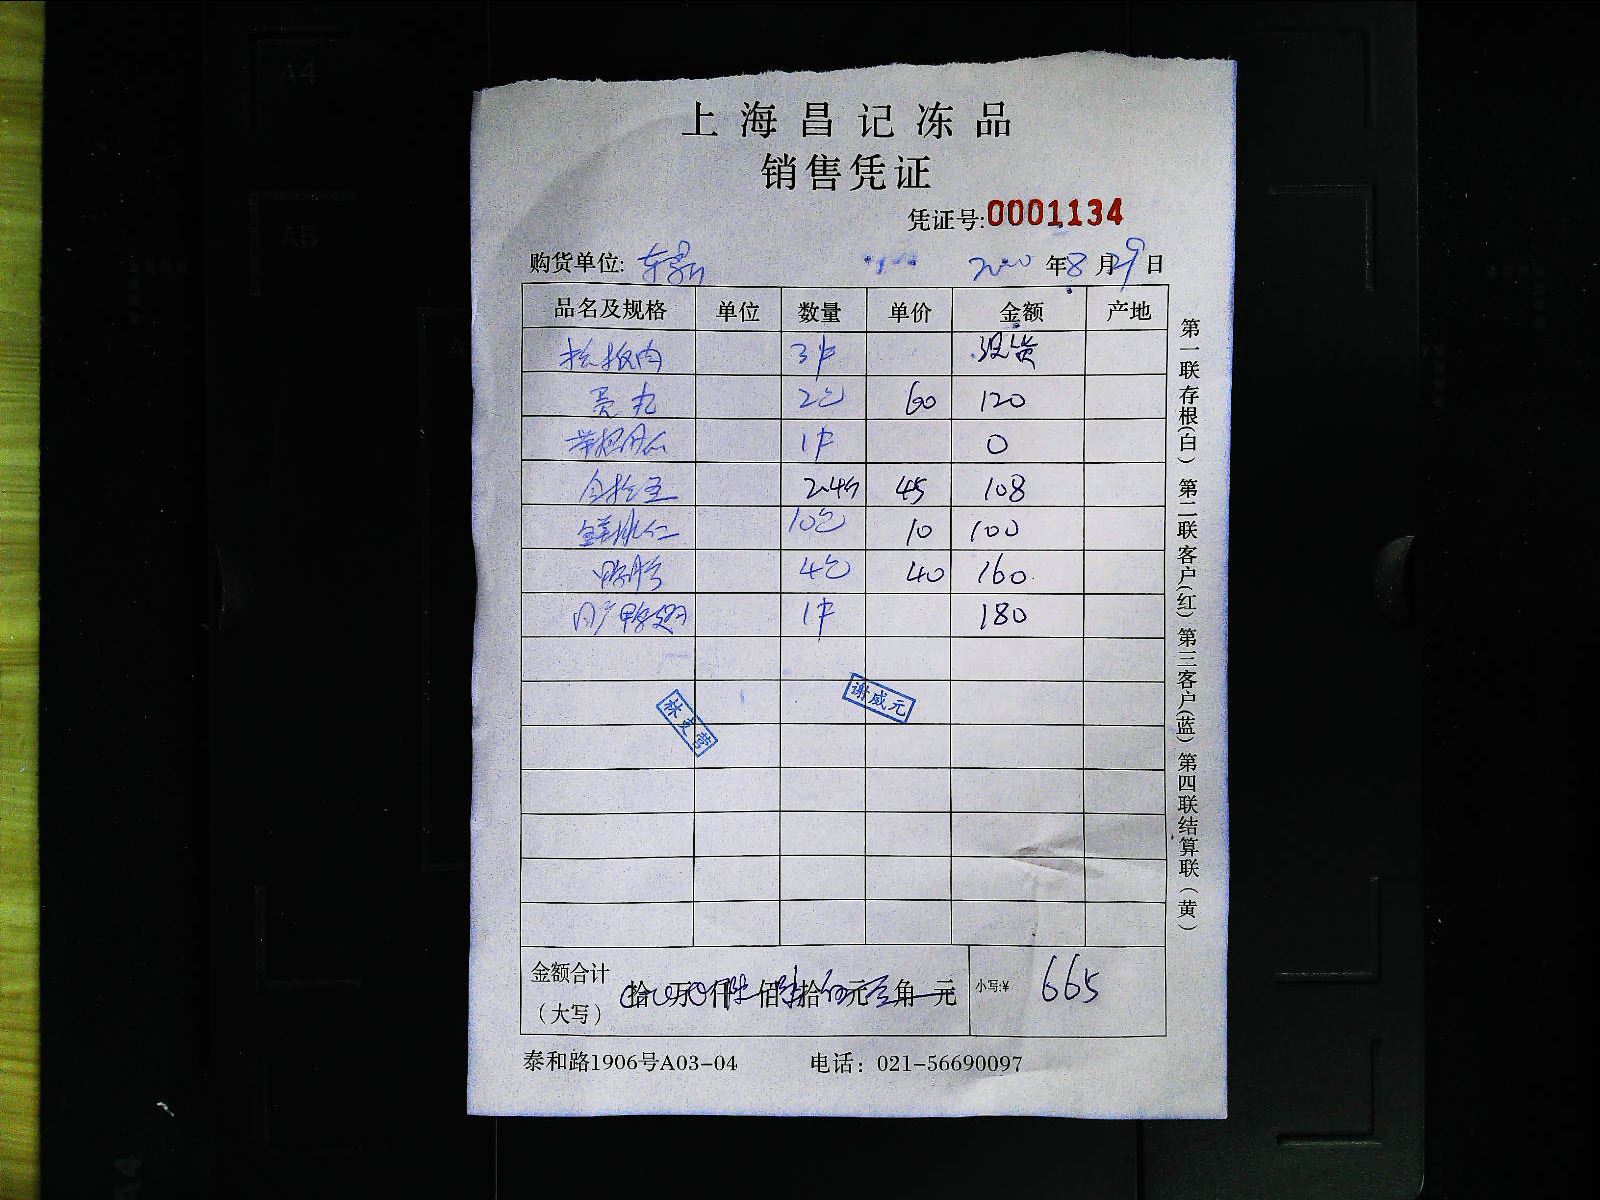 上海昌记冻品
销售凭证
凭证号:0001134
购货单位: 2020年8月29日
品名及规格 单位 数量 单价 金额 产地
3件 没货
亮丸 2包 60 120
1件 0
2.4斤 45 108
鲜桃仁 10包 10 100
鸭胗 4包 40 160
鸭翅 1件 180
林支营
谢威元
金额合计 拾 万 仟 佰 拾 元 角 元 小写:¥ 665
（大写）
泰和路1906号A03-04 电话：021-56690097
第一联存根(白) 第二联客户(红) 第三客户(蓝) 第四联结算联(黄)